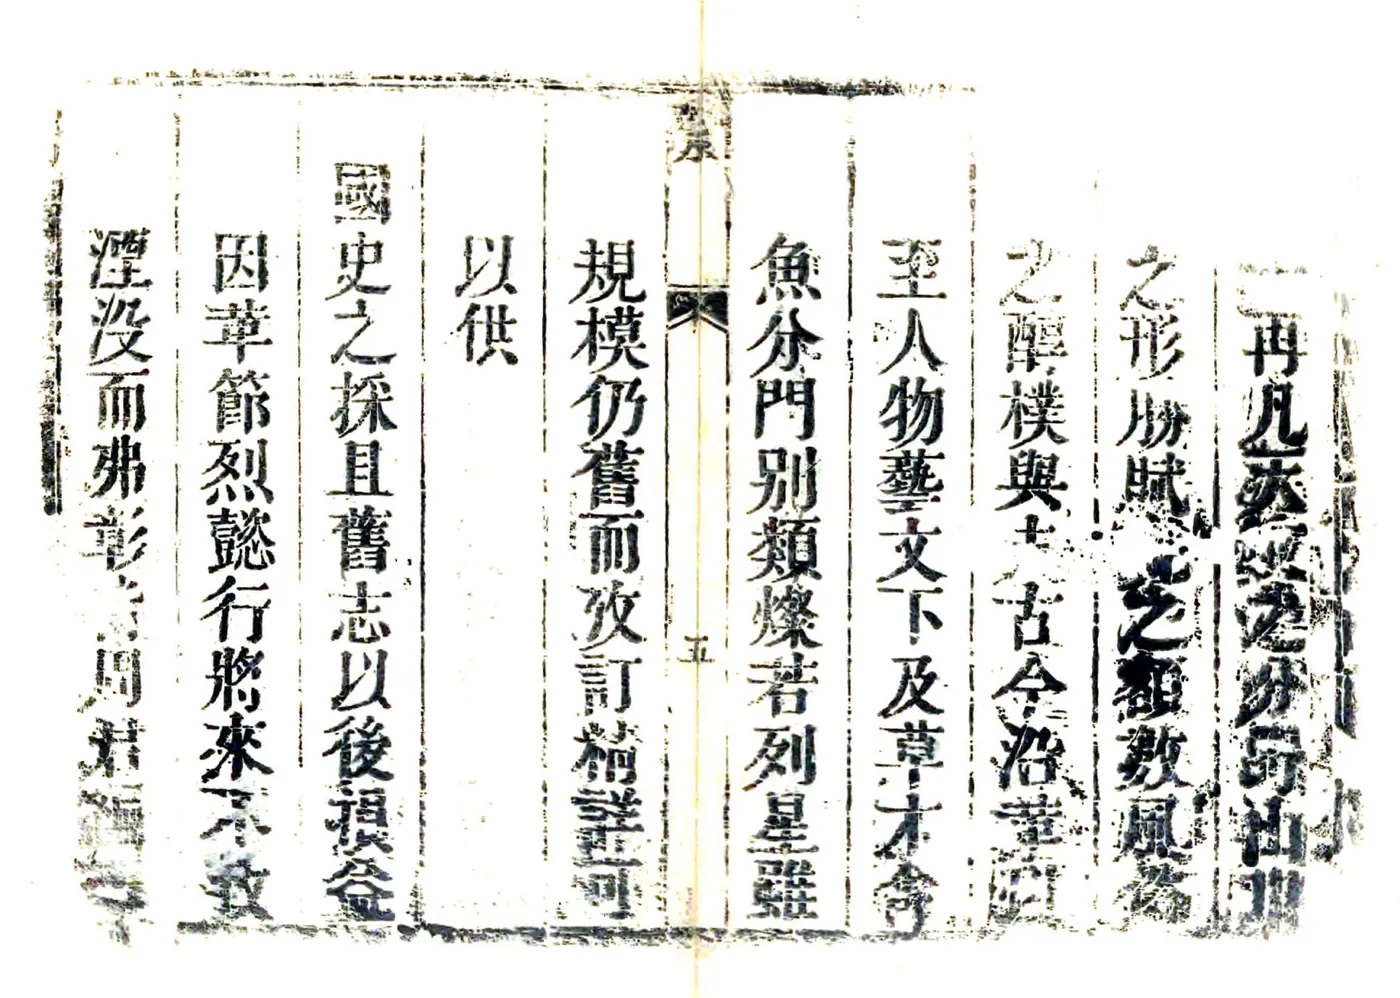 再凡之分野山川
之形勝賦之額數風俗
之醇樸與古今沿革
至人物藝文下及草木禽
魚分門別類燦若列星雖
序
五
規模仍舊而攷訂精詳可
以供
國史之採且舊志以後損益
因革節烈懿行將來不致
湮没而弗彰周君